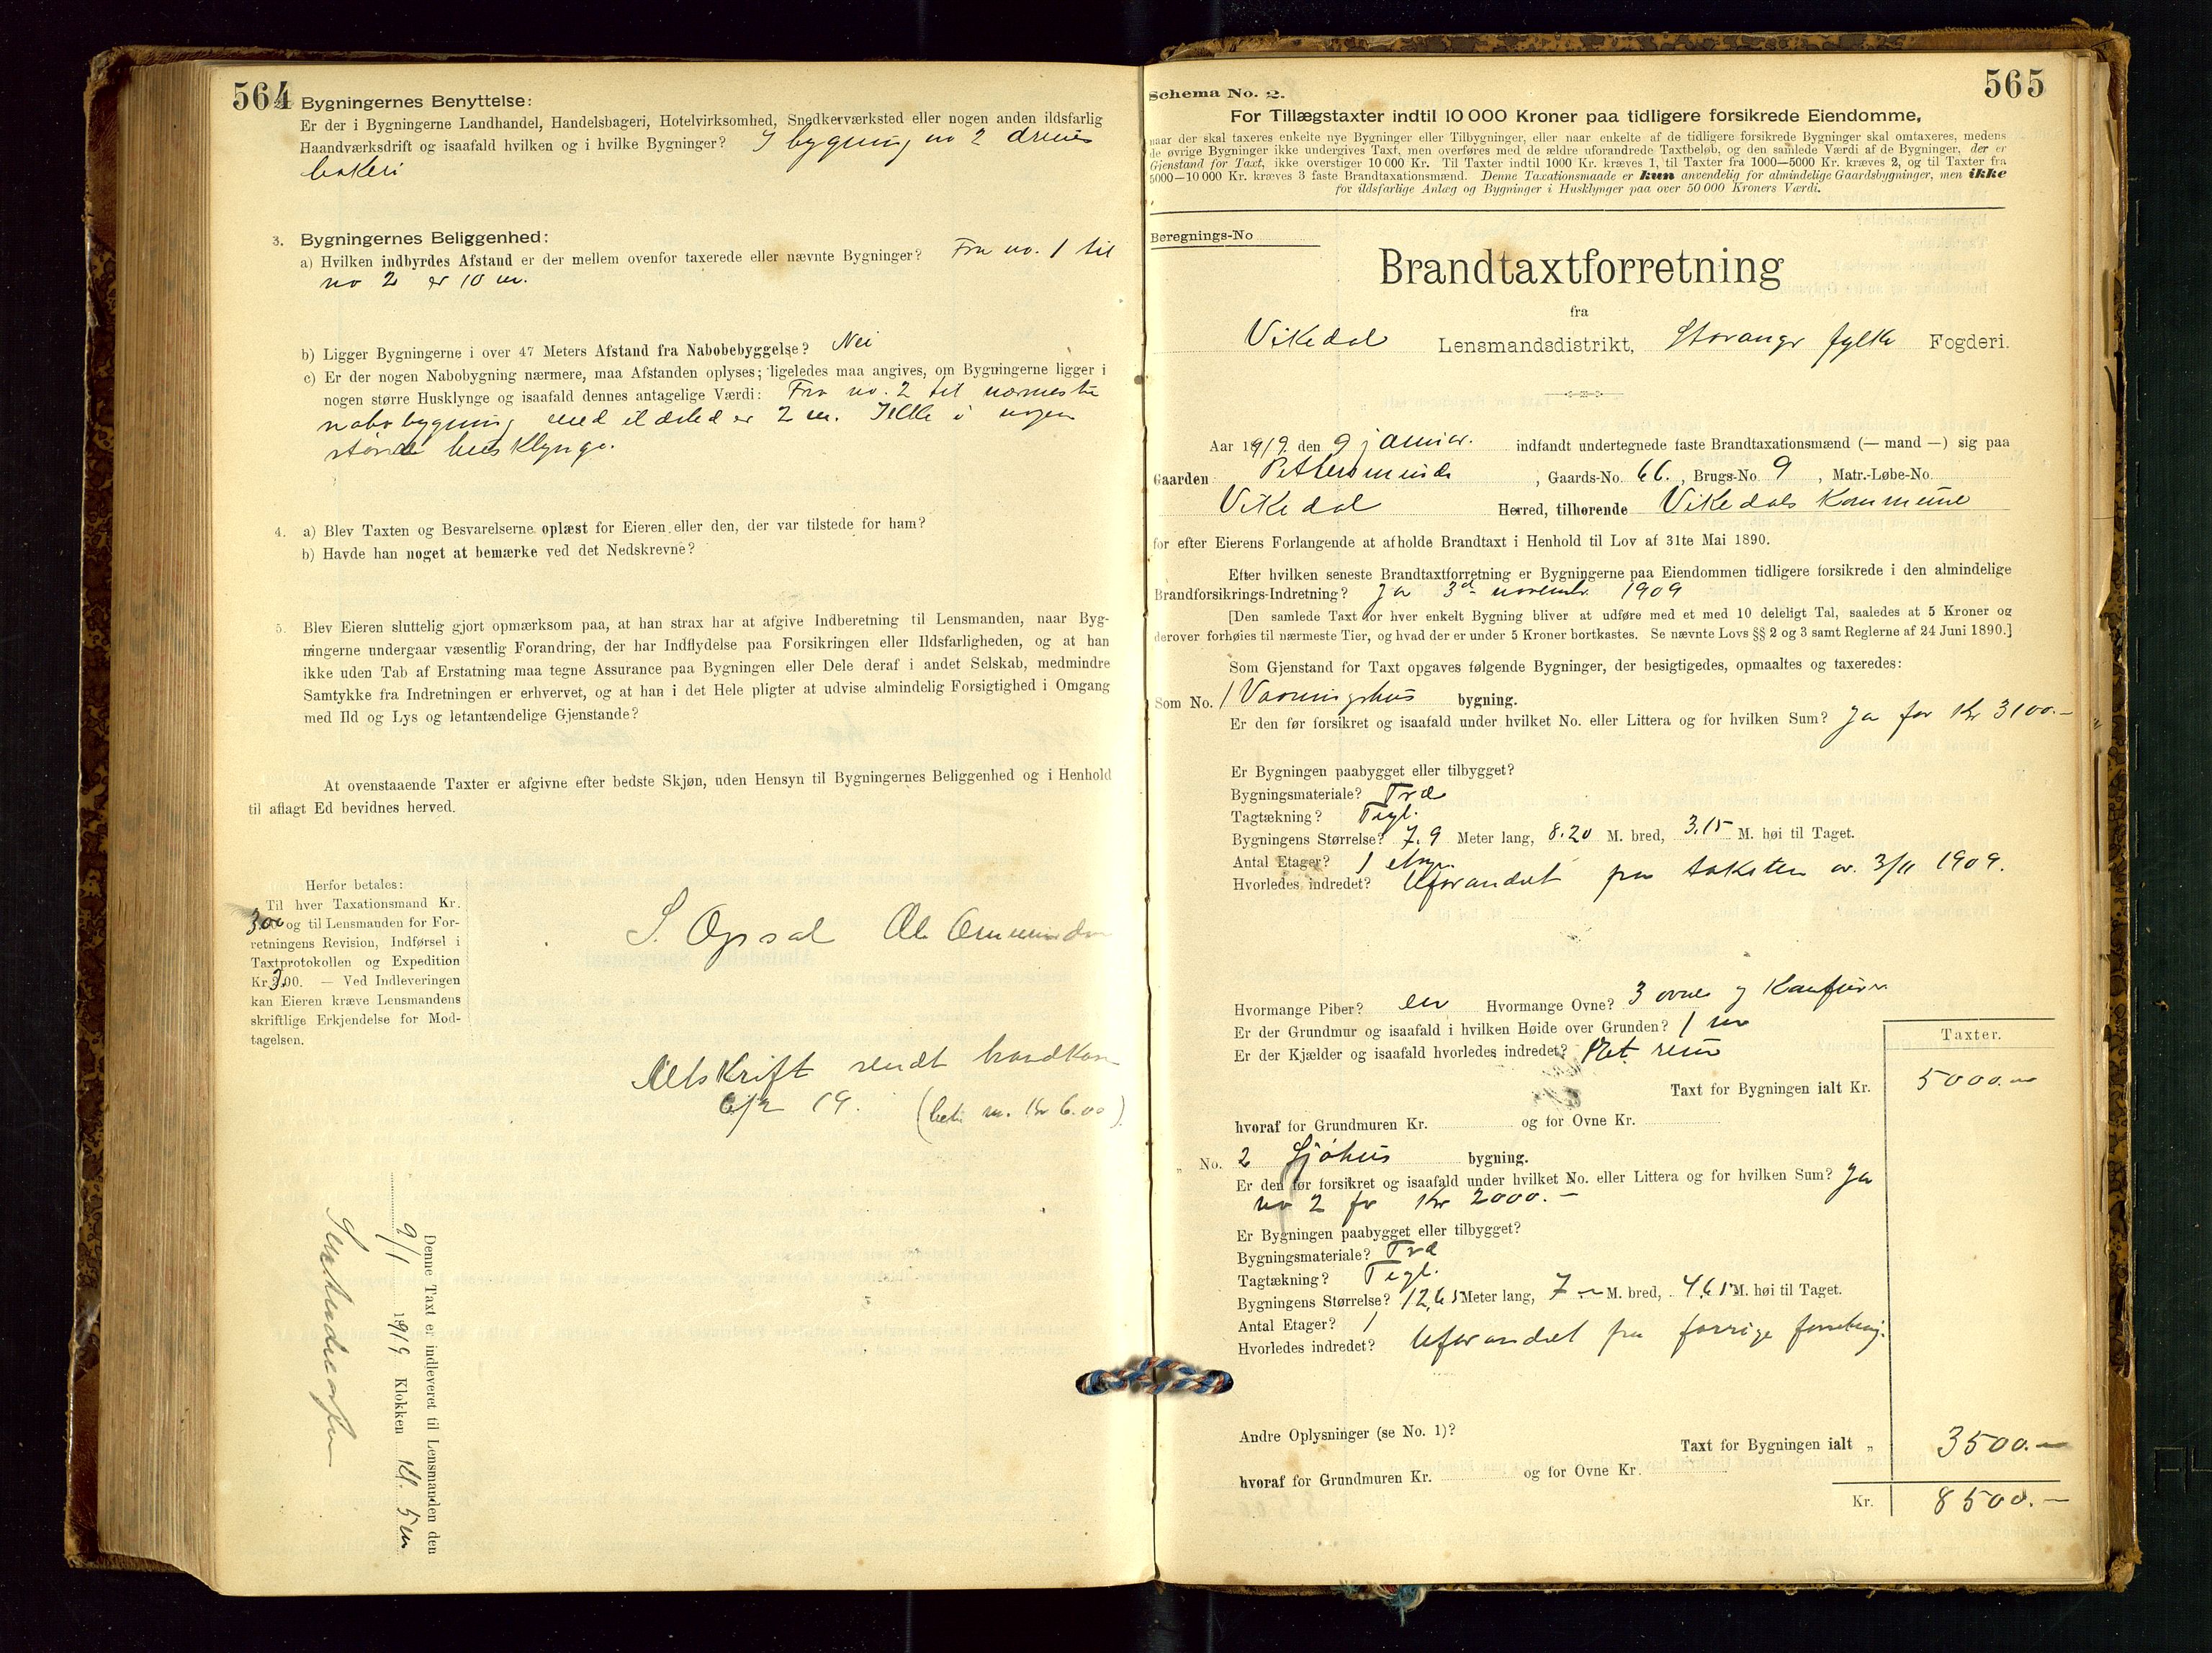 564
Bygningernes Benyttelse:
Er der i Bygningerne Landhandel, Handelsbageri, Hotelvirksomhed, Snedkerværksted eller nogen anden ildsfarlig
Haandværksdrift og isaafald hvilken og i hvilke Bygninger? I bygning no 2 drives
bakeri
3. Bygningernes Beliggenhed:
a) Hvilken indbyrdes Afstand er der mellem ovenfor taxerede eller nævnte Bygninger? Fra no. 1 til
no 2 er 10 m.
b) Ligger Bygningerne i over 47 Meters Afstand fra Nabobebyggelse? Nei
c) Er der nogen Nabobygning nærmere, maa Afstanden oplyses; ligeledes maa angives, om Bygningerne ligger i
nogen større Husklynge og isaafald dennes antagelige Værdi: Fra no. 2 til nærmeste
nabobygning med ildsted er 2 m. Ikke i nogen
større husklynge.
4. a) Blev Taxten og Besvarelserne oplæst for Eieren eller den, der var tilstede for ham?
b) Havde han noget at bemærke ved det Nedskrevne?
5. Blev Eieren sluttelig gjort opmærksom paa, at han strax har at afgive Indberetning til Lensmanden, naar Byg-
ningerne undergaar væsentlig Forandring, der har Indflydelse paa Forsikringen eller Ildsfarligheden, og at han
ikke uden Tab af Erstatning maa tegne Assurance paa Bygningen eller Dele deraf i andet Selskab, medmindre
Samtykke fra Indretningen er erhvervet, og at han i det Hele pligter at udvise almindelig Forsigtighed i Omgang
med Ild og Lys og letantændelige Gjenstande?
At ovenstaaende Taxter er afgivne efter bedste Skjøn, uden Hensyn til Bygningernes Beliggenhed og i Henhold
til aflagt Ed bevidnes herved.
Herfor betales:
Til hver Taxationsmand Kr.
3.00 og til Lensmanden for For-
retningens Revision, Indførsel i
Taxtprotokollen og Expedition
Kr. 3.00. — Ved Indleveringen
kan Eieren kræve Lensmandens
skriftlige Erkjendelse for Mod-
tagelsen.
S. Opsal Ole Ommundsen
Utskrift sendt brandkas
6/2 19. (bet. m. Kr 6.00)
Denne Taxt er indleveret til Lensmanden den
9/1 1919 Klokken Kl. 5 em
565
Schema No. 2.
For Tillægstaxter indtil 10 000 Kroner paa tidligere forsikrede Eiendomme,
naar der skal taxeres enkelte nye Bygninger eller Tilbygninger, eller naar enkelte af de tidligere forsikrede Bygninger skal omtaxeres, medens
de øvrige Bygninger ikke undergives Taxt, men overføres med de ældre uforandrede Taxtbeløb, og den samlede Værdi af de Bygninger, der er
Gjenstand for Taxt, ikke overstiger 10 000 Kr. Til Taxter indtil 1000 Kr. kræves 1, til Taxter fra 1000—5000 Kr. kræves 2, og til Taxter fra
5000—10 000 Kr. kræves 3 faste Brandtaxationsmænd. Denne Taxationsmaade er kun anvendelig for almindelige Gaardsbygninger, men ikke
for ildsfarlige Anlæg og Bygninger i Husklynger paa over 50 000 Kroners Værdi.
Beregnings-No
Brandtaxtforretning
fra
Vikedal Lensmandsdistrikt, Stavanger fylke Fogderi.
Aar 1919 den 9 januar. indfandt undertegnede faste Brandtaxationsmænd (— mand —) sig paa
Gaarden Pettersminde, Gaards-No. 66., Brugs-No 9, Matr.-Løbe-No.
Vikedal Herred, tilhørende Vikedals Kommune
for efter Eierens Forlangende at afholde Brandtaxt i Henhold til Lov af 31te Mai 1890.
Efter hvilken seneste Brandtaxtforretning er Bygningerne paa Eiendommen tidligere forsikrede i den almindelige
Brandforsikrings-Indretning? Ja 3d november 1909
[Den samlede Taxt for hver enkelt Bygning bliver at udføre med et med 10 deleligt Tal, saaledes at 5 Kroner og
derover forhøies til nærmeste Tier, og hvad der er under 5 Kroner bortkastes. Se nævnte Lovs §§ 2 og 3 samt Reglerne af 24 Juni 1890.]
Som Gjenstand for Taxt opgaves følgende Bygninger, der besigtigedes, opmaaltes og taxeredes:
Som No. 1 Vaaningshus bygning.
Er den før forsikret og isaafald under hvilket No. eller Littera og for hvilken Sum? Ja for Kr 3100.-
Er Bygningen paabygget eller tilbygget?
Bygningsmateriale? Træ
Tagtækning? Tegl.
Bygningens Størrelse? 7.9 Meter lang, 8.20 M. bred, 3.15 M. høi til Taget.
Antal Etager? 1 etage.
Hvorledes indredet? Uforandret fra taksten av 3/11 1909.
Hvormange Piber? en Hvormange Ovne? 3 ovner og Komfur
Er der Grundmur og isaafald i hvilken Høide over Grunden? 1 m
Er der Kjælder og isaafald hvorledes indredet? Et rum
Taxter.
Taxt for Bygningen ialt Kr. 5000.-
hvoraf for Grundmuren Kr. og for Ovne Kr.
„ No. 2 Sjøhus bygning.
Er den før forsikret og isaafald under hvilket No. eller Littera og for hvilken Sum? Ja
no 2 for Kr 2000.-
Er Bygningen paabygget eller tilbygget?
Bygningsmateriale? Træ
Tagtækning? Tegl.
Bygningens Størrelse? 12,65 Meter lang, 7 - M. bred, 4,65 M. høi til Taget.
Antal Etager? 1
Hvorledes indredet? Uforandret fra forrige forretning.
Andre Oplysninger (se No. 1)?
Taxt for Bygningen ialt „ 3500.-
hvoraf for Grundmuren Kr. og for Ovne Kr.
Kr. 8500.-